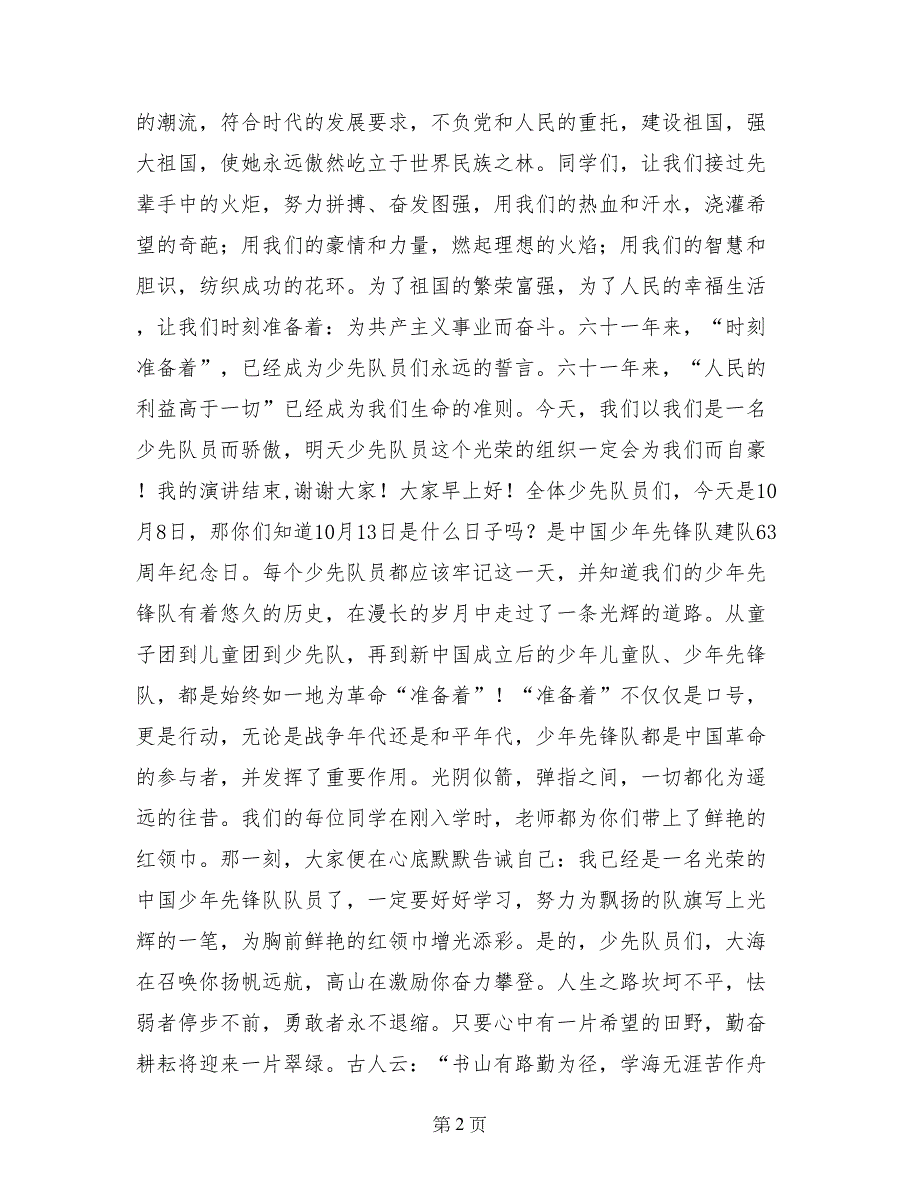 的潮流，符合时代的发展要求，不负党和人民的重托，建设祖国，强
大祖国，使她永远傲然屹立于世界民族之林。同学们，让我们接过先
辈手中的火炬，努力拼搏、奋发图强，用我们的热血和汗水，浇灌希
望的奇葩；用我们的豪情和力量，燃起理想的火焰；用我们的智慧和
胆识，纺织成功的花环。为了祖国的繁荣富强，为了人民的幸福生活
，让我们时刻准备着：为共产主义事业而奋斗。六十一年来，“时刻
准备着”，已经成为少先队员们永远的誓言。六十一年来，“人民的
利益高于一切”已经成为我们生命的准则。今天，我们以我们是一名
少先队员而骄傲，明天少先队员这个光荣的组织一定会为我们而自豪
！我的演讲结束,谢谢大家！大家早上好！全体少先队员们，今天是10
月8日，那你们知道10月13日是什么日子吗？是中国少年先锋队建队63
周年纪念日。每个少先队员都应该牢记这一天，并知道我们的少年先
锋队有着悠久的历史，在漫长的岁月中走过了一条光辉的道路。从童
子团到儿童团到少先队，再到新中国成立后的少年儿童队、少年先锋
队，都是始终如一地为革命“准备着”！“准备着”不仅仅是口号，
更是行动，无论是战争年代还是和平年代，少年先锋队都是中国革命
的参与者，并发挥了重要作用。光阴似箭，弹指之间，一切都化为遥
远的往昔。我们的每位同学在刚入学时，老师都为你们带上了鲜艳的
红领巾。那一刻，大家便在心底默默告诫自己：我已经是一名光荣的
中国少年先锋队队员了，一定要好好学习，努力为飘扬的队旗写上光
辉的一笔，为胸前鲜艳的红领巾增光添彩。是的，少先队员们，大海
在召唤你扬帆远航，高山在激励你奋力攀登。人生之路坎坷不平，怯
弱者停步不前，勇敢者永不退缩。只要心中有一片希望的田野，勤奋
耕耘将迎来一片翠绿。古人云：“书山有路勤为径，学海无涯苦作舟
第 2 页